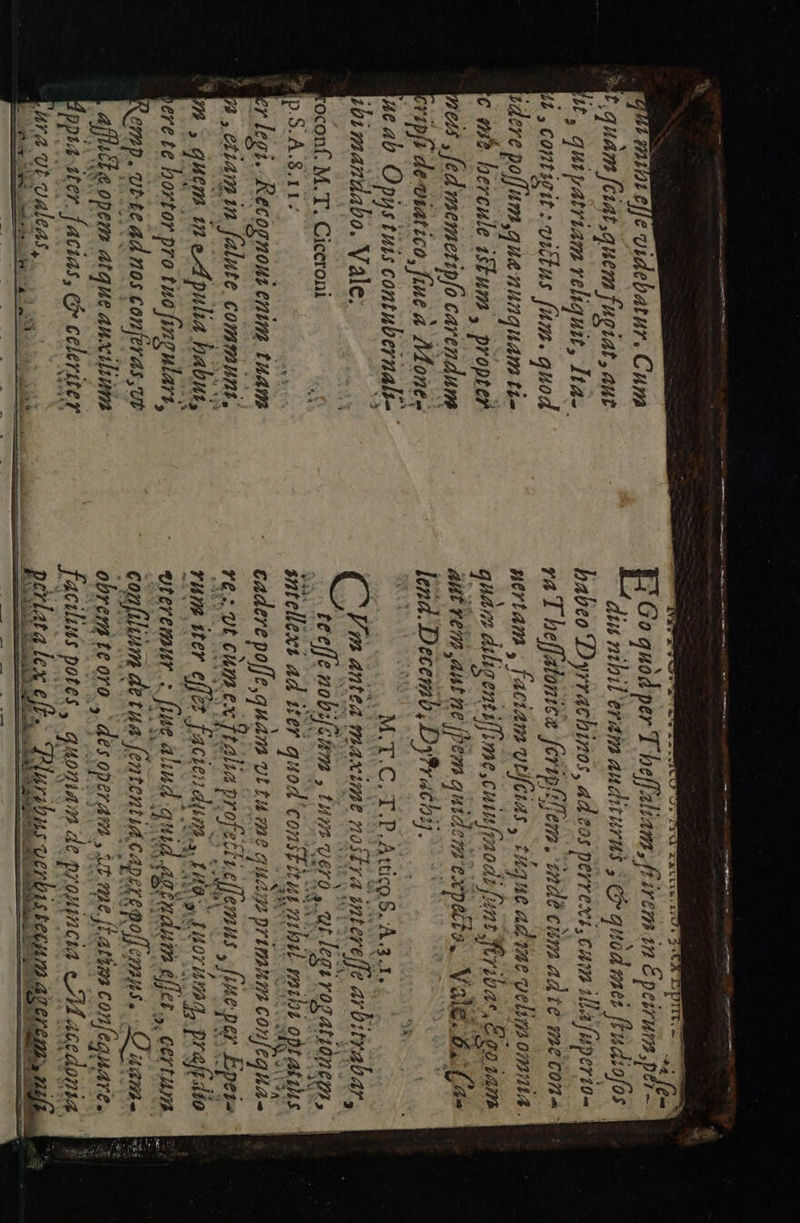 qui mihi eſſe videbatur. Cum
t, quàm ſciat, quem fugiat, aut
it, qui patriam reliquit, Ita-
it, contigit: victus ſum. quod
idere poſſum, que nunquam ti-
c me hercule iſtum, propter
meis, ſed memetipſo carendum
cripſi de viatico, ſiue à Mone-
ue ab Opijs tuis contubernali-
ibi mandabo. Vale.
roconſ. M. T. Ciceroni
p S. A. 8. 11.
er legi. Recognoui enim tuam
m, etiam in ſalute communi,
m, quem in Apulia habui,
ere te hortor pro tuo ſingulari,
Remp. vt te ad nos conferas, vt
afflictæ opem atque auxilium
Appia iter facias, & celeriter
cura vt valeas.
EGo quod per Theſſaliam, ſi irem in Epeirum, per-
diu nihil eram auditurus, & quòd mei ſtudioſos
habeo Dyrrachinos, ad eos perrexi, cum illa ſuperio-
ra Theſſalonicæ ſcripſiſſem. inde cùm ad te me con-
uertam, faciam vt ſcias, túque ad me velim omnia
quàm diligentiſſime, cuiuſmodi ſunt, ſcribas. Ego iam
aut rem, aut ne ſpem quidem expecto. Vale. 6. Ca-
lend. Decemb. Dyrrachij.
M. T. C. T. P. Attico S. A. 3. 1.
CVm antea maxime noſtra intereſſe arbitrabar,
te eſſe nobiſcum, tum verò, vt legi rogationem,
intellexi ad iter quod conſtitui nihil mihi optatius
cadere poſſe, quàm vt tu me quàm primùm conſequa-
re: vt cum ex Italia profecti eſſemus, ſiue per Epei-
rum iter eſſet faciendum, tuo, tuorumq; præſidio
vteremur: ſiue aliud quid agendum eſſet, certum
conſilium de tua ſententia capere poſſemus. Quam-
obrem te oro, des operam, vt me ſtatim conſequare.
facilius potes, quoniam de prouincia Macedonia
perlata lex eſt. Pluribus verbis tecum agerem, niſi